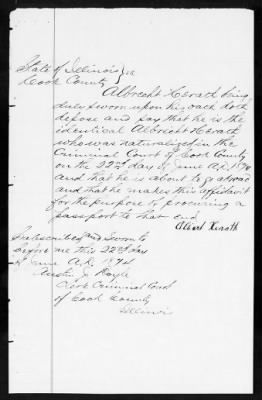 State of Illinois } ss
Cook County }
Albrecht Herath being
duly sworn upon his oath doth
depose and say that he is the
identical Albrecht Herath
who was naturalized in the
Criminal Court of Cook County
on the 22nd day of June A.D. 1874
and that he is about to go abroad
and that he makes this affidavit
for the purpose of procuring a
passport to that end
Albert Herath
Subscribed and Sworn to
before me this 22nd day
of June A.D. 1874
Austin J Doyle
Clerk Criminal Court
of Cook County
Illinois